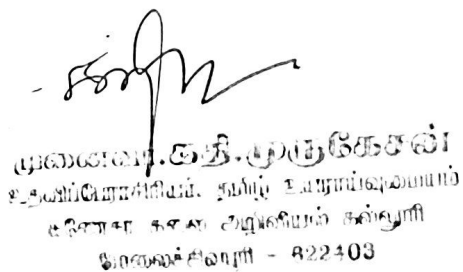 முனைவர்.கதி.முருகேசன்
உதவிப்பேராசிரியர், தமிழ் உயராய்வுமையம்
கணேசர் கலை அறிவியல் கல்லூரி
மேலைச்சிவபுரி - 622403